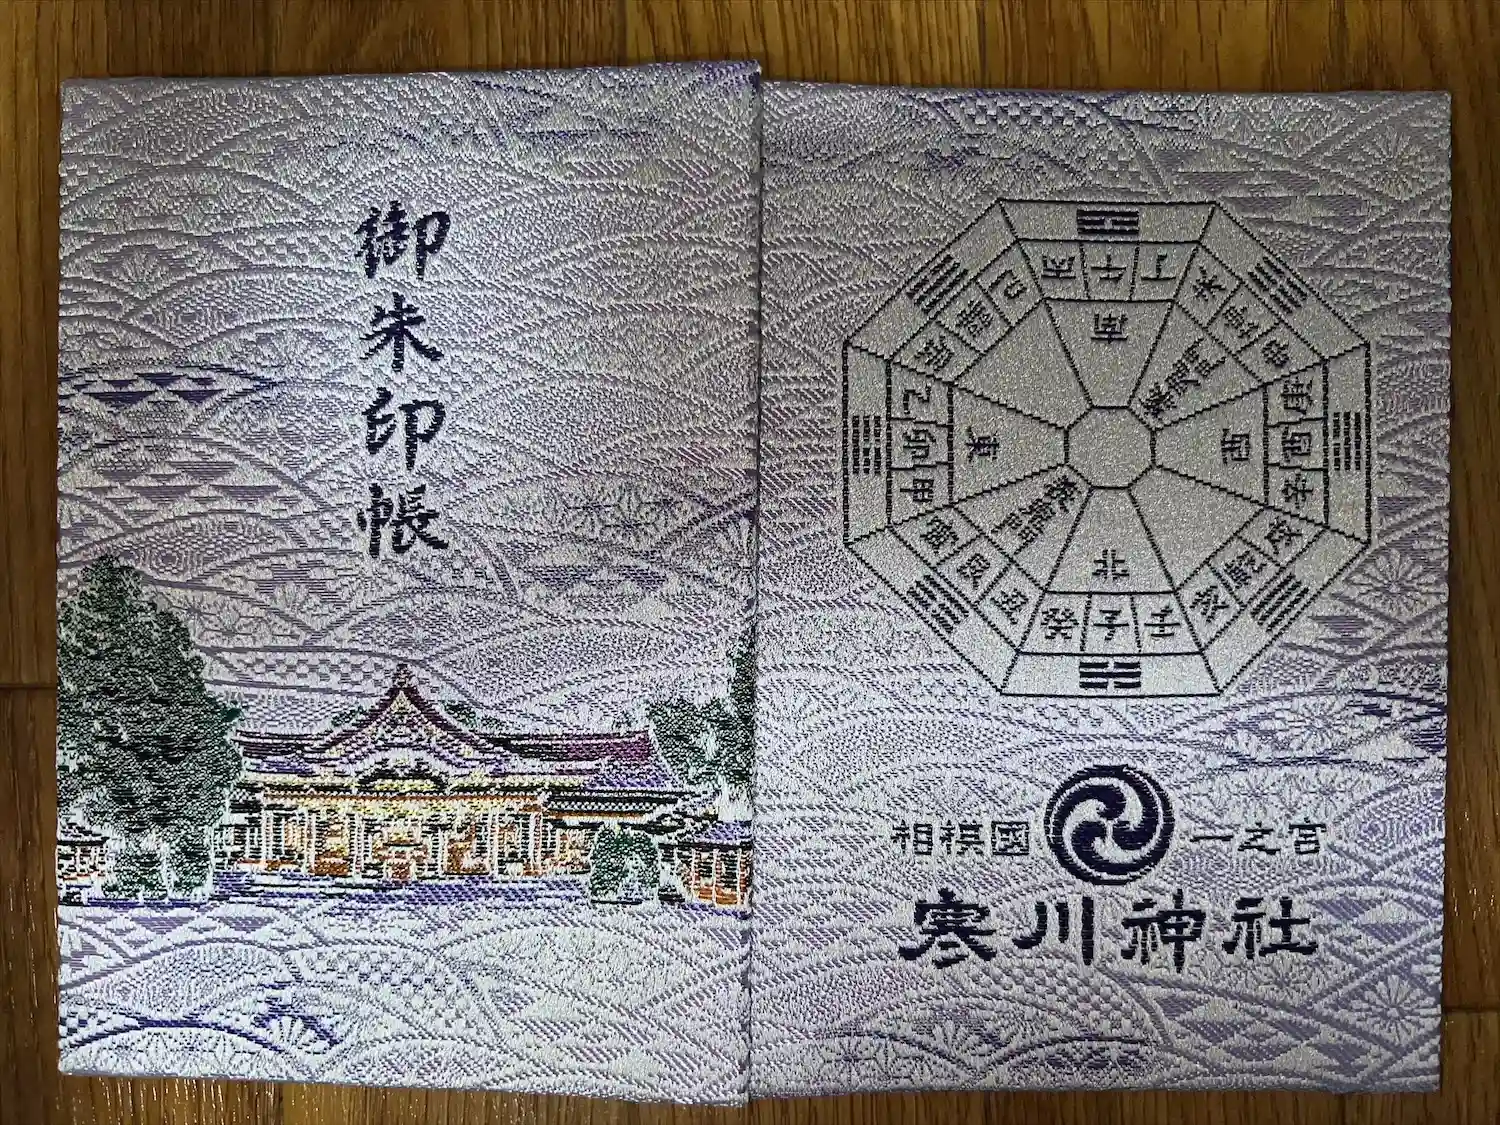 御朱印帳
丙午丁
未坤申
庚酉辛
戌乾亥
壬子癸
丑艮寅
甲卯乙
辰巽巳
南
裏鬼門
西
北
表鬼門
東
相模國 一之宮
寒川神社